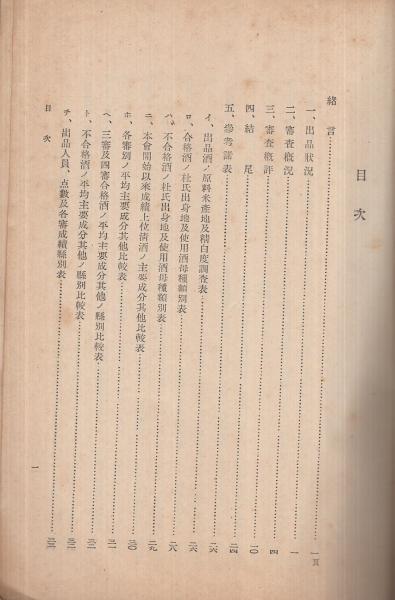 目次
緒言……一頁
一、出品狀況……一
二、審査概況……四
三、審査概評……一〇
四、結尾……二四
五、參考諸表……二六
イ、出品酒ノ原料米產地及精白度調査表……二六
ロ、合格酒ノ杜氏出身地及使用酒母種類別表……二六
ハ、不合格酒ノ杜氏出身地及使用酒母種類別表……二八
ニ、本會開始以來成績上位淸酒ノ主要成分其他比較表……二九
ホ、各審別ノ平均主要成分其他比較表……三〇
ヘ、三審及四審合格酒ノ平均主要成分其他ノ縣別比較表……三一
ト、不合格酒ノ平均主要成分其他ノ縣別比較表……三二
チ、出品人員、点數及各審成績縣別表
目次
一